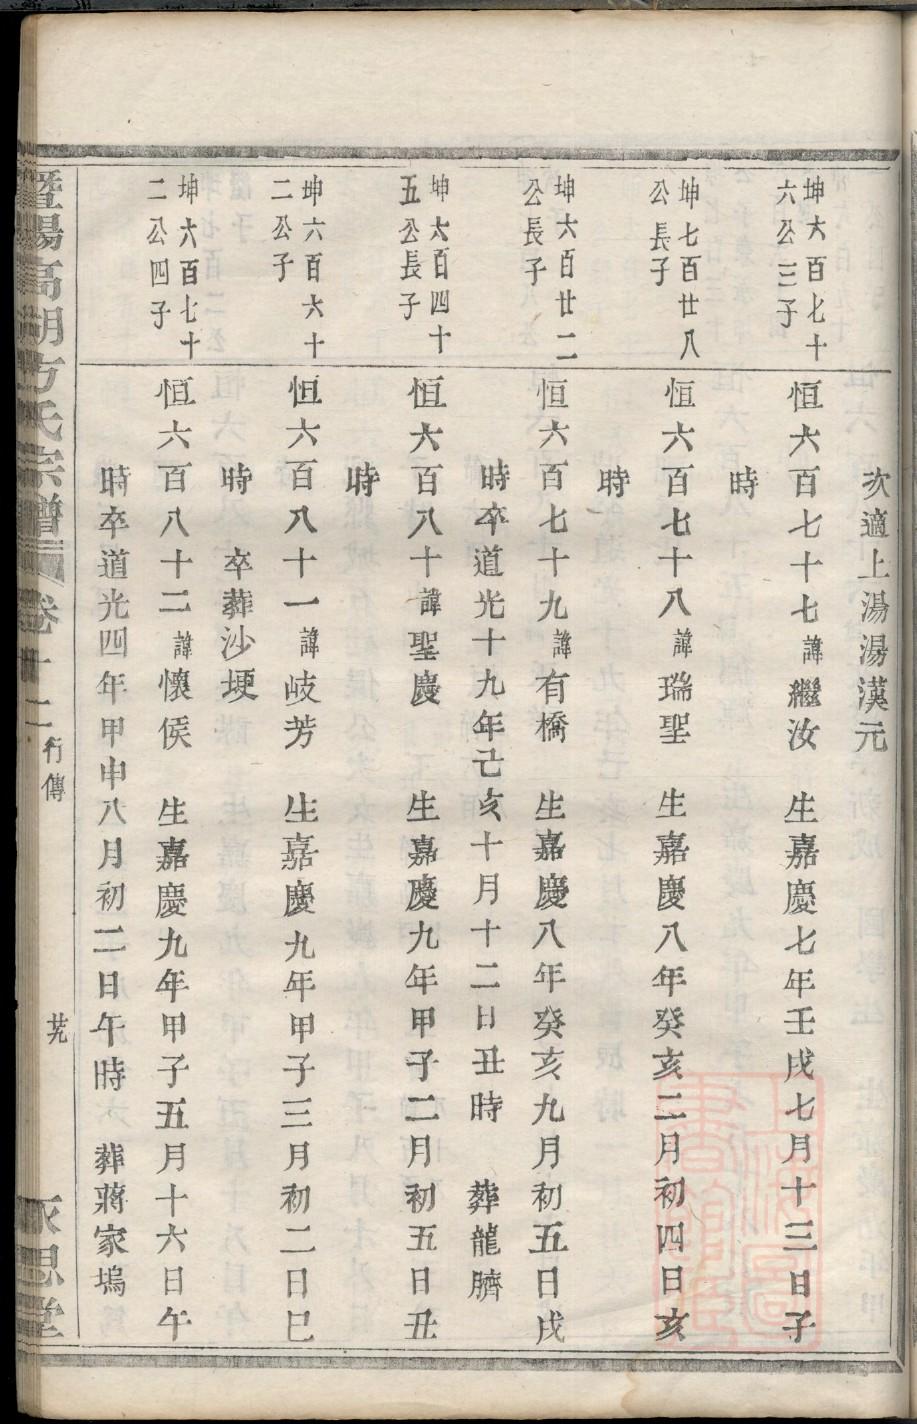 次適上湯湯漢元
坤六百七十
六公三子
恒六百七十七諱繼汝　生嘉慶七年壬戌七月十三日子
時
坤七百廿八
公長子
恒六百七十八諱瑞聖　生嘉慶八年癸亥二月初四日亥
時
坤六百廿二
公長子
恒六百七十九諱有橋　生嘉慶八年癸亥九月初五日戌
時卒道光十九年己亥十月十二日丑時　葬龍臍
坤六百四十
五公長子
恒六百八十諱聖慶　生嘉慶九年甲子二月初五日丑
時
坤六百六十
二公子
恒六百八十一諱岐芳　生嘉慶九年甲子三月初二日巳
時　卒葬沙埂
坤六百七十
二公四子
恒六百八十二諱懷侯　生嘉慶九年甲子五月十六日午
時卒道光四年甲申八月初二日午時　葬蔣家塢
暨陽高湖方氏宗譜　卷十二　行傳　思堂